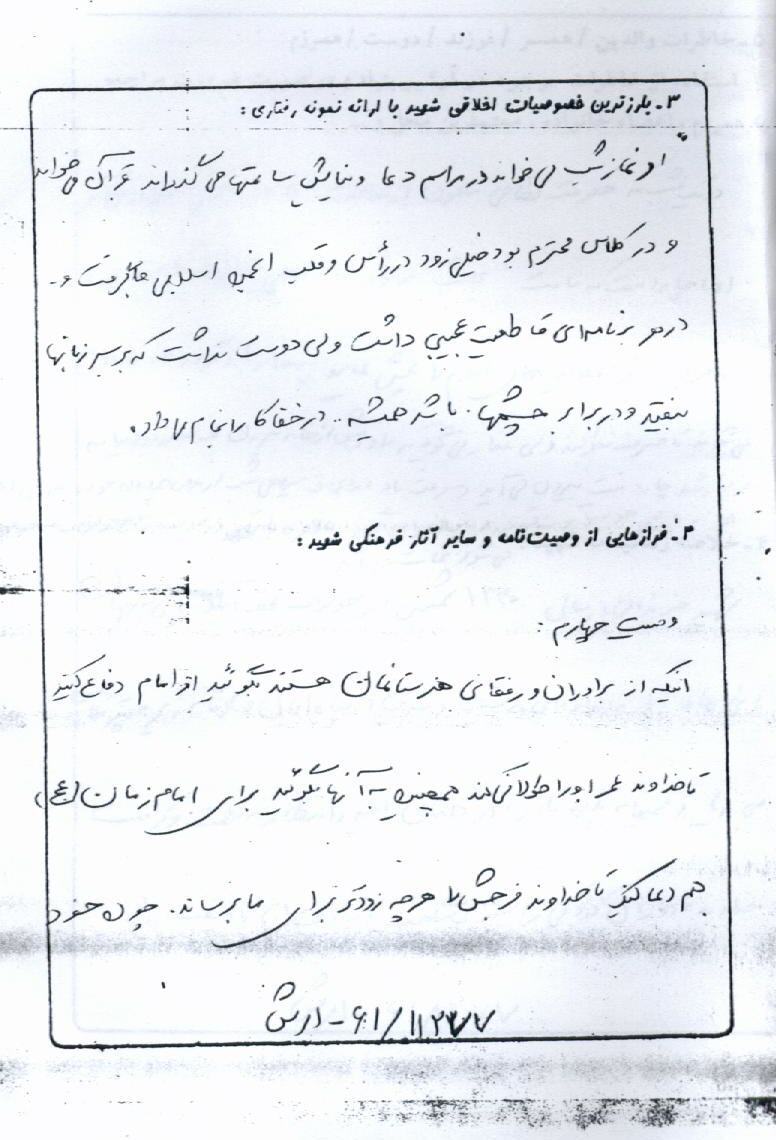 ۳ـ بارزترین خصوصیات اخلاقی شهید با ارائه نمونه رفتاری:
او نماز شب می خواند در مراسم دعا و نیایش ساعتها می گذراند قرآن می خواند
و در کلاس محترم بود خیلی زود در رأس و قلب انجمن اسلامی جا گرفت و ـ
در هر برنامه ای قاطعیت عجیبی داشت ولی دوست نداشت که بر سر زبانها
بیفتد و در برابر چشمها باشد همیشه در خفا کار انجام می داد.
۴ـ فرازهایی از وصیت نامه و سایر آثار فرهنگی شهید:
وصیت چهارم:
اینکه از برادران و رفقائی هنرستانمان هستند بگوئید از امام دفاع کنید
تا خداوند عمر او را طولانی کند همچنین به آنها بگوئید برای امام زمان (عج)
هم دعا کنید تا خداوند فرجش را هرچه زودتر برای ما برساند. چون خود
۶۱/۱۱۲۷۷ - ارتش